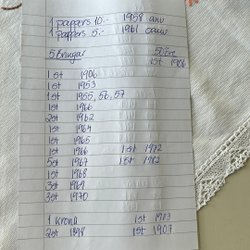 1 pappers 10:- 1958 anv
1 pappers 5:- 1961 oanv
5 kronor 50 öre
1st 1906
1st 1906
1st 1953
1st 1955, 56, 57
1st 1966
2st 1962
1st 1964
1st 1965
1st 1966 1st 1972
5st 1967 1st 1982
1st 1968
3st 1969
3st 1970
1 krona 1st 1973
2st 1898 1st 1907